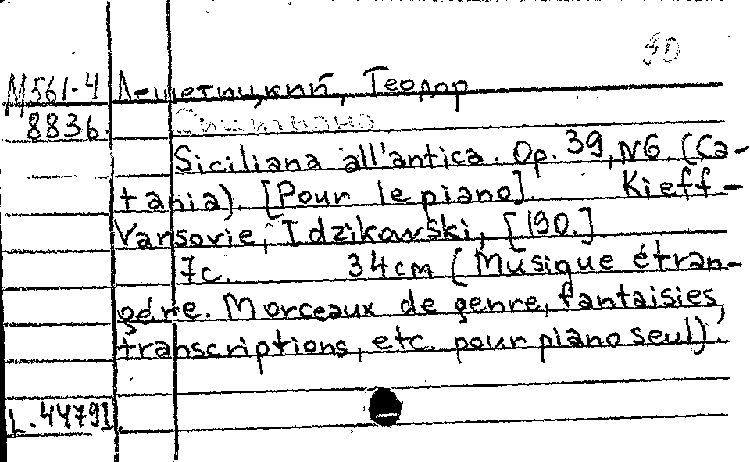 90
М561-4 Лешетицкий, Теодор
8836. Сицилиана
Siciliana all'antica. Op. 39, N6 (Ca-
tania). [Pour le piano]. Kieff-
Varsovie, Idzikowski, [190.]
7c. 34cm (Musique étran-
gère. Morceaux de genre, fantaisies,
transcriptions, etc. pour piano seul).
L.44791